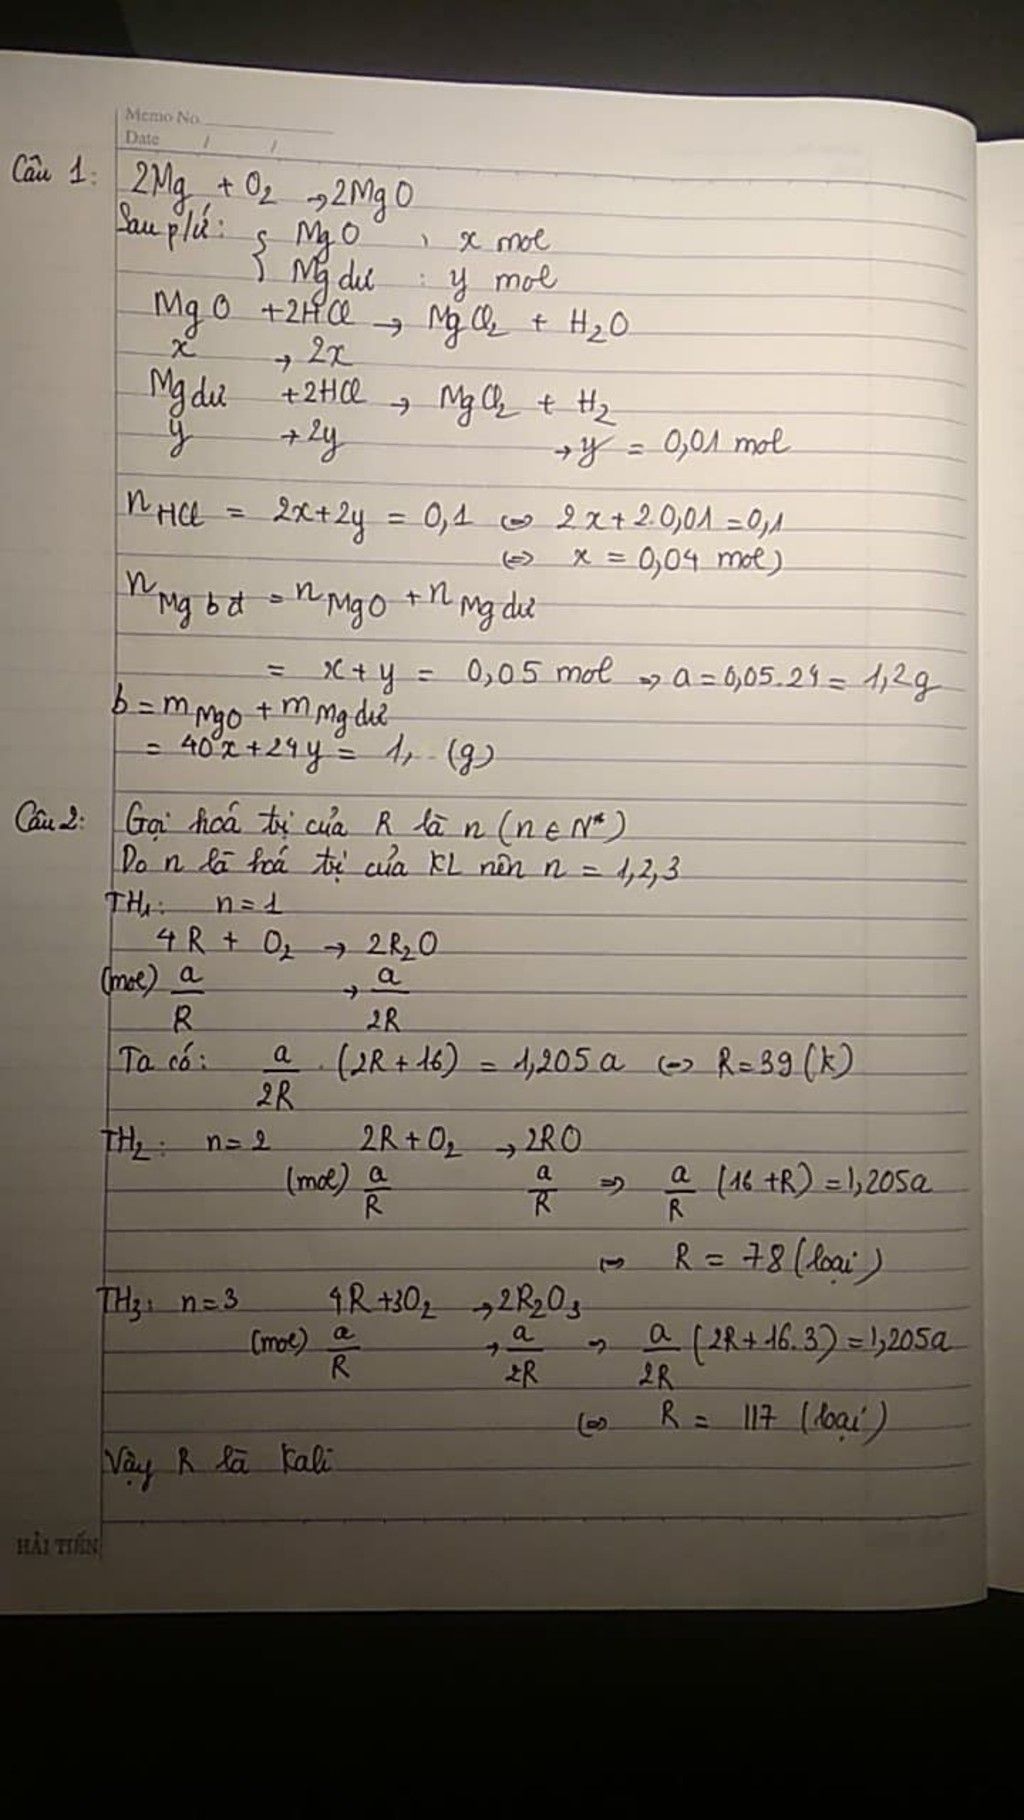 Memo No.
Date / /
Câu 1: 2Mg + O₂ → 2MgO
Sau p/ứ: { MgO , x mol
{ Mg dư : y mol
MgO + 2HCl → MgCl₂ + H₂O
x → 2x
Mg dư + 2HCl → MgCl₂ + H₂
y → 2y → y = 0,01 mol
n HCl = 2x + 2y = 0,1 ⇔ 2x + 2.0,01 = 0,1
⇔ x = 0,04 mol)
n Mg bđ = n MgO + n Mg dư
= x + y = 0,05 mol ⇒ a = 0,05.24 = 1,2g
b = m MgO + m Mg dư
= 40x + 24y = 1,.. (g)
Câu 2: Gọi hoá trị của R là n (n ∈ N*)
Do n là hoá trị của KL nên n = 1,2,3
TH₁: n = 1
4R + O₂ → 2R₂O
(mol) a/R → a/2R
Ta có: a/2R . (2R + 16) = 1,205a ⇔ R = 39 (K)
TH₂: n = 2 2R + O₂ → 2RO
(mol) a/R a/R ⇒ a/R (16 + R) = 1,205a
⇔ R = 78 (loại)
TH₃: n = 3 4R + 3O₂ → 2R₂O₃
(mol) a/R → a/2R → a/2R (2R + 16.3) = 1,205a
⇔ R = 117 (loại)
Vậy R là Kali
HẢI TIẾN